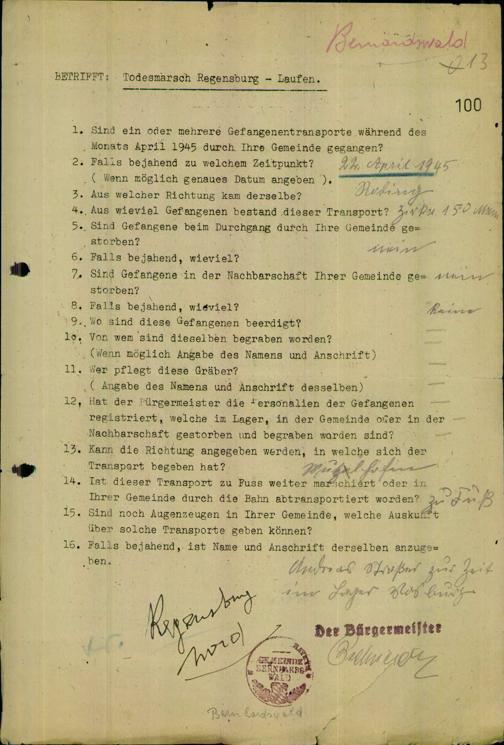 Bernardswald
213
BETRIFFT: Todesmarsch Regensburg - Laufen.
100
1. Sind ein oder mehrere Gefangenentransporte während des
Monats April 1945 durch Ihre Gemeinde gegangen?
2. Falls bejahend zu welchem Zeitpunkt? 22. April 1945
( Wenn möglich genaues Datum angeben ).
3. Aus welcher Richtung kam derselbe?
4. Aus wieviel Gefangenen bestand dieser Transport? Zirka 150 Mann
5. Sind Gefangene beim Durchgang durch Ihre Gemeinde ge=
storben? nein
6. Falls bejahend, wieviel?
7. Sind Gefangene in der Nachbarschaft Ihrer Gemeinde ge= nein
storben?
8. Falls bejahend, wieviel? keine
9. Wo sind diese Gefangenen beerdigt?
10. Von wem sind dieselben begraben worden?
(Wenn möglich Angabe des Namens und Anschrift)
11. Wer pflegt diese Gräber?
( Angabe des Namens und Anschrift desselben)
12, Hat der Bürgermeister die Personalien der Gefangenen
registriert, welche im Lager, in der Gemeinde oder in der
Nachbarschaft gestorben und begraben worden sind?
13. Kann die Richtung angegeben werden, in welche sich der
Transport begeben hat?
14. Ist dieser Transport zu Fuss weiter marschiert oder in
Ihrer Gemeinde durch die Bahn abtransportiert worden? zu Fuß
15. Sind noch Augenzeugen in Ihrer Gemeinde, welche Auskunft
über solche Transporte geben können?
16. Falls bejahend, ist Name und Anschrift derselben anzuge=
ben.
Andreas Straßer zur Zeit
im Lager
Regensburg
Nord
Der Bürgermeister
GEMEINDE
BERNHARDS
WALD
Bernhardswald